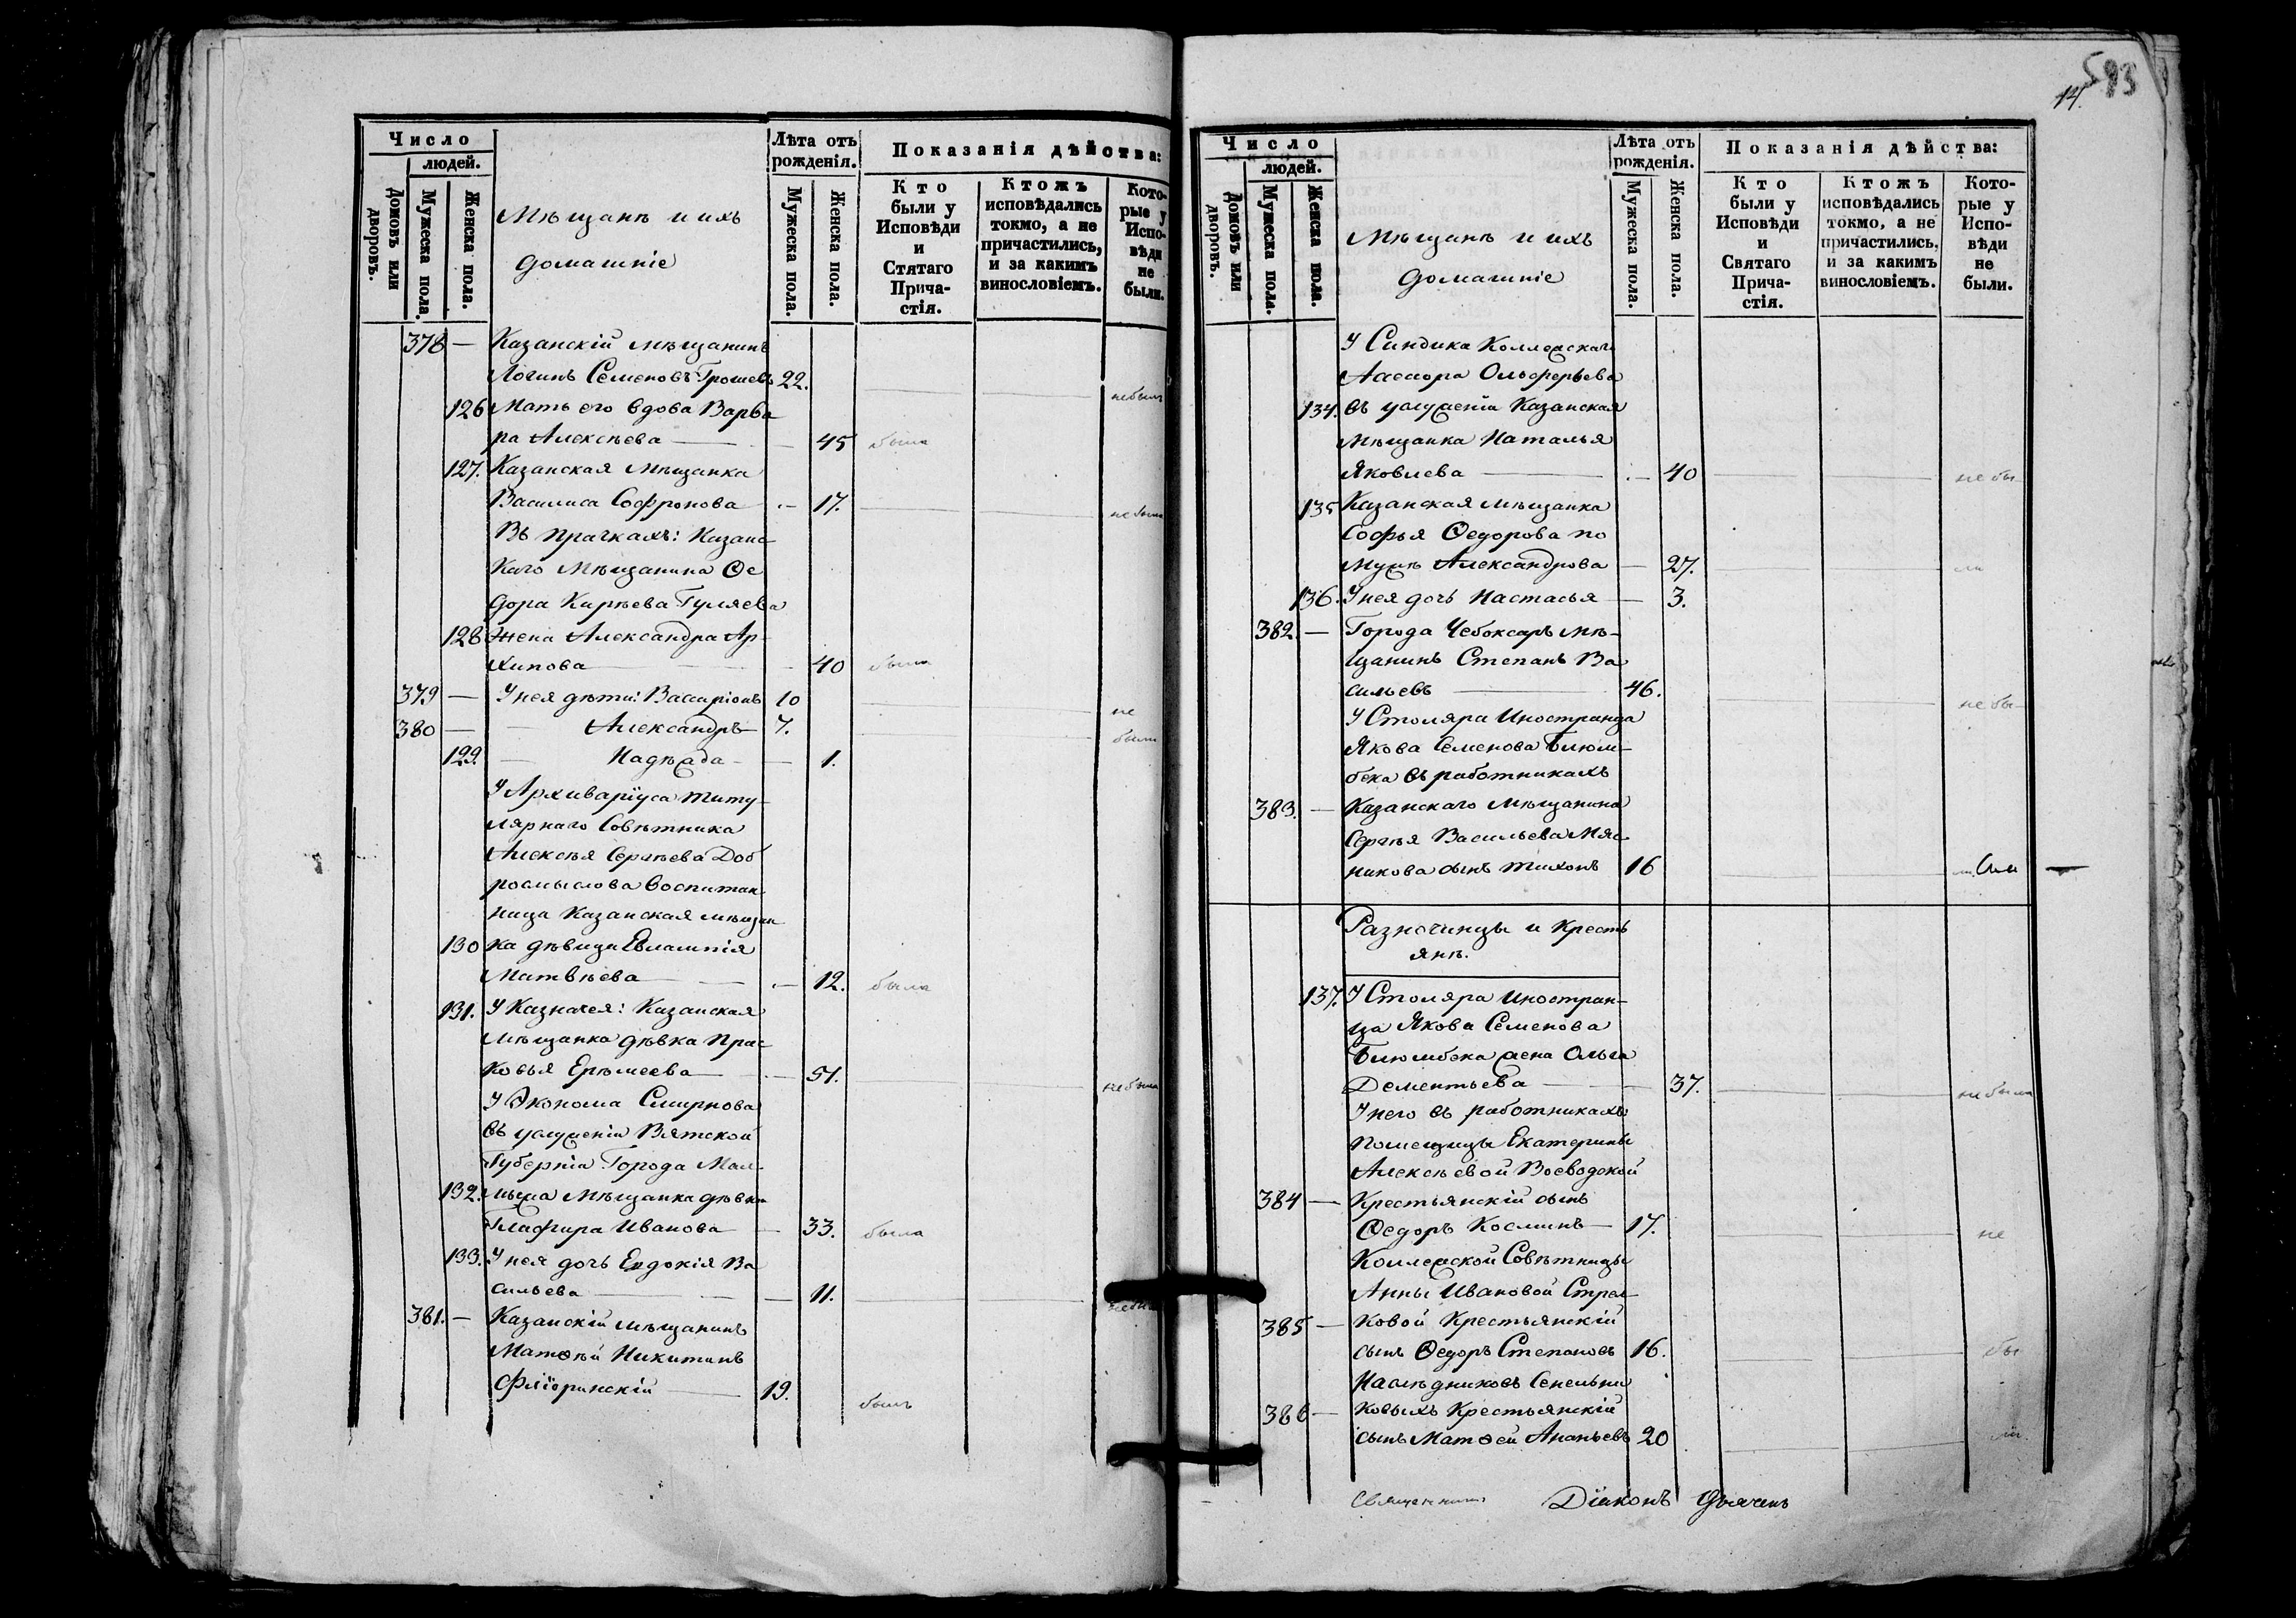 593
14.
Число
людей.
Домовъ или дворовъ.
Мужеска пола.
Женска пола.
Мѣщанъ и ихъ
домашніе
Лѣта отъ рожденія.
Мужеска пола.
Женска пола.
Показанія дѣйства:
Кто были у Исповѣди и Стятаго Прича-стія.
Ктожъ исповѣдались токмо, а не причастились, и за какимъ винословіемъ.
Кото-рые у Испо-вѣди не были.
378 — Казанскій мѣщанинъ
Логинъ Семеновъ Грошевъ 22. небылъ
126 Мать его вдова Варва
ра Алексѣева — 45 была
127. Казанская Мѣщанка
Василиса Софронова — 17. не была
Въ прачкахъ: Казанс
каго Мѣщанина Ѳе
дора Карпѣева Гуляева
128 Жена Александра Ар-
хипова — 40 была
379 — У нея дѣти: Вассаріонъ 10 не
380 — Александръ 7. были
129. — Надѣжда — 1.
У Архиваріуса титу-
лярнаго Совѣтника
Алексѣя Сергѣева Доб
росмыслова воспитан
ница Казанская мѣщан
130 ка дѣвица Евлампія
Матвѣева — 12. была
131. У Казначея: Казанская
мѣщанка дѣвка Прас
ковья Ерѣмеева — 51. не была
У Эконома Смирнова
въ услуженіи Вятской
Губерніи Города Мал-
132. мыжа Мѣщанка дѣвка
Глафира Иванова — 33. была
133. У нея дочь Евдокія Ва
сильева — 11.
381. — Казанскій мѣщанинъ
Матѳѣй Никитинъ
Флоринскій — 19. былъ
Число
людей.
Домовъ или дворовъ.
Мужеска пола.
Женска пола.
Мѣщанъ и ихъ
домашніе
Лѣта отъ рожденія.
Мужеска пола.
Женска пола.
Показанія дѣйства:
Кто были у Исповѣди и Святаго Прича-стія.
Ктожъ исповѣдались токмо, а не причастились, и за какимъ винословіемъ.
Кото-рые у Испо-вѣди не были.
У Синдика Коллежскаго
Ассесора Олферьева
134. въ услуженіи Казанская
Мѣщанка Наталья
Яковлева — 40 не бы-
135 Казанская мѣщанка
Софья Ѳедорова по
мужѣ Александрова — 27. ли
136. У нея дочь Настасья — 3.
382. — Города Чебоксаръ мѣ-
щанинъ Степанъ Ва
сильевъ — 46. не бы-
У Столяра Иностранца
Якова Семенова Блюм-
бека въ работникахъ
383. — Казанскаго Мѣщанина
Сергѣя Васильева Мяс
никова сынъ Тихонъ 16 ли
Разночинцы и кресть
янъ.
137. У Столяра Иностран-
ца Якова Семенова
Блюмбека жена Ольга
Дементьева — 37. не была
У него въ работникахъ
помещицы Екатерины
Алексѣевой Воеводской
384 — Крестьянскій сынъ
Ѳедоръ Косминъ — 17. не
Коллежской Совѣтницы
Анны Ивановой Страл-
385 — ковой Крестьянскій
сынъ Ѳедоръ Степановъ 16. бы
Наслѣдниковъ Сенельни
386 — ковыхъ Крестьянскій
сынъ Матѳей Ананьевъ 20 ли.
Священникъ Діаконъ Дьячекъ